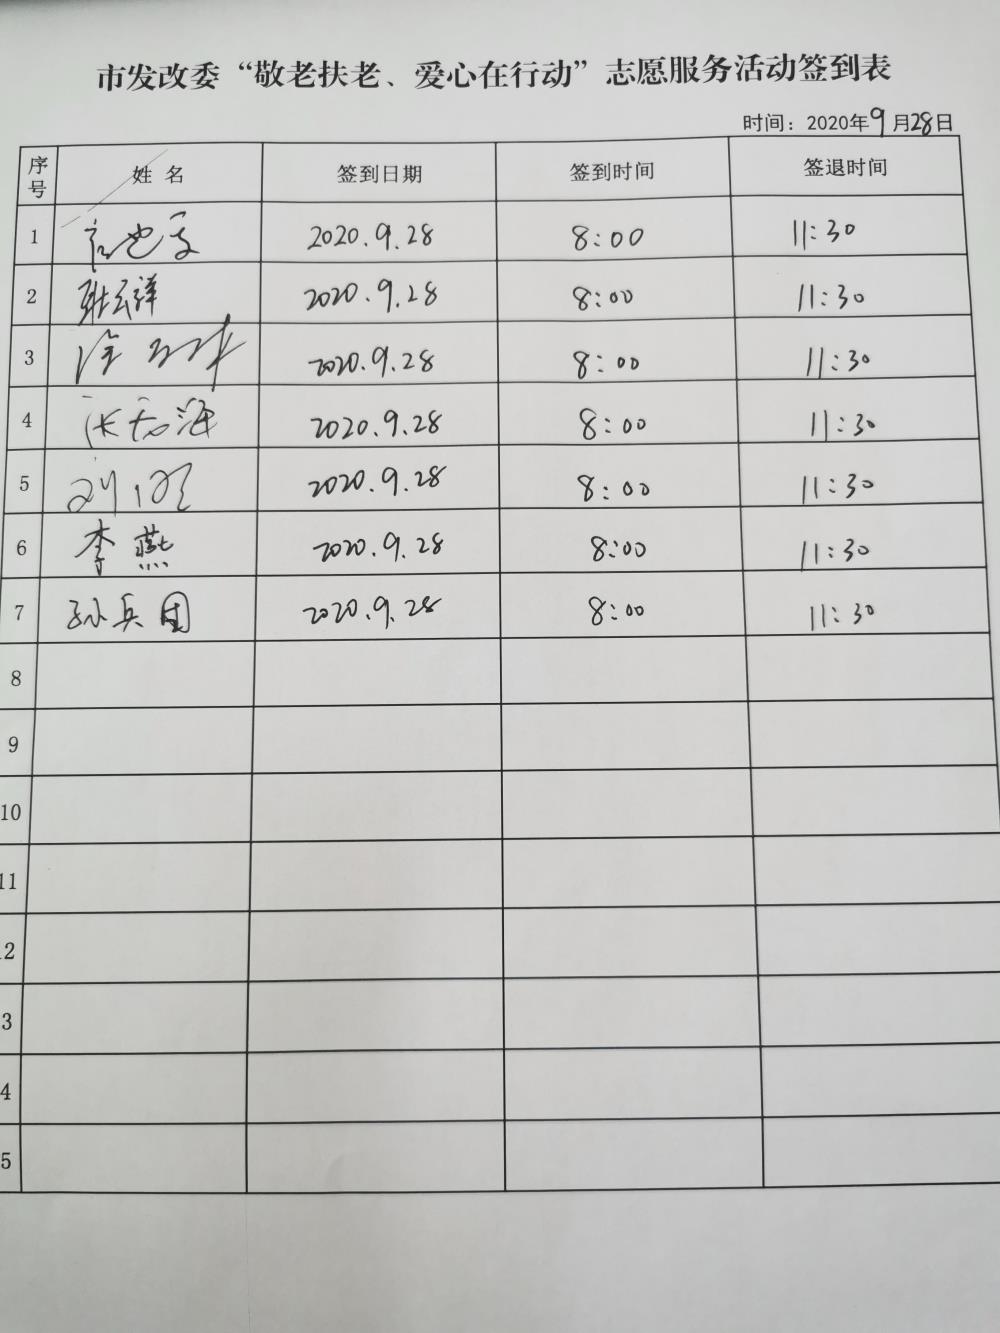 市发改委“敬老扶老、爱心在行动”志愿服务活动签到表
时间：2020年9月28日
序号 姓 名 签到日期 签到时间 签退时间
1 2020.9.28 8:00 11:30
2 2020.9.28 8:00 11:30
3 2020.9.28 8:00 11:30
4 2020.9.28 8:00 11:30
5 刘 2020.9.28 8:00 11:30
6 李燕 2020.9.28 8:00 11:30
7 孙兵团 2020.9.28 8:00 11:30
8
9
10
11
2
3
4
5